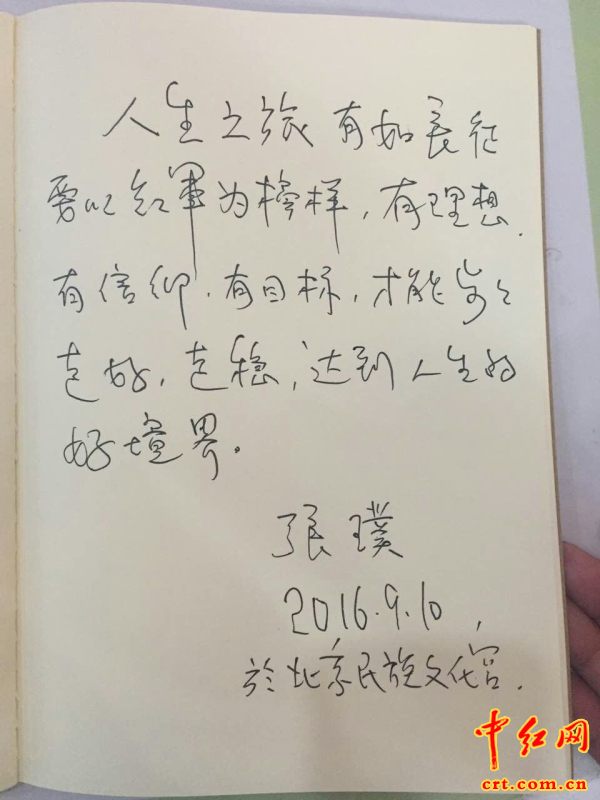 人生之旅有如長征
要以红軍为榜样，有理想、
有信仰、有目标，才能步々
走好，走稳，达到人生的
好境界。
張璞
2016.9.10，
於北京民族文化宫.
中红网
crt.com.cn